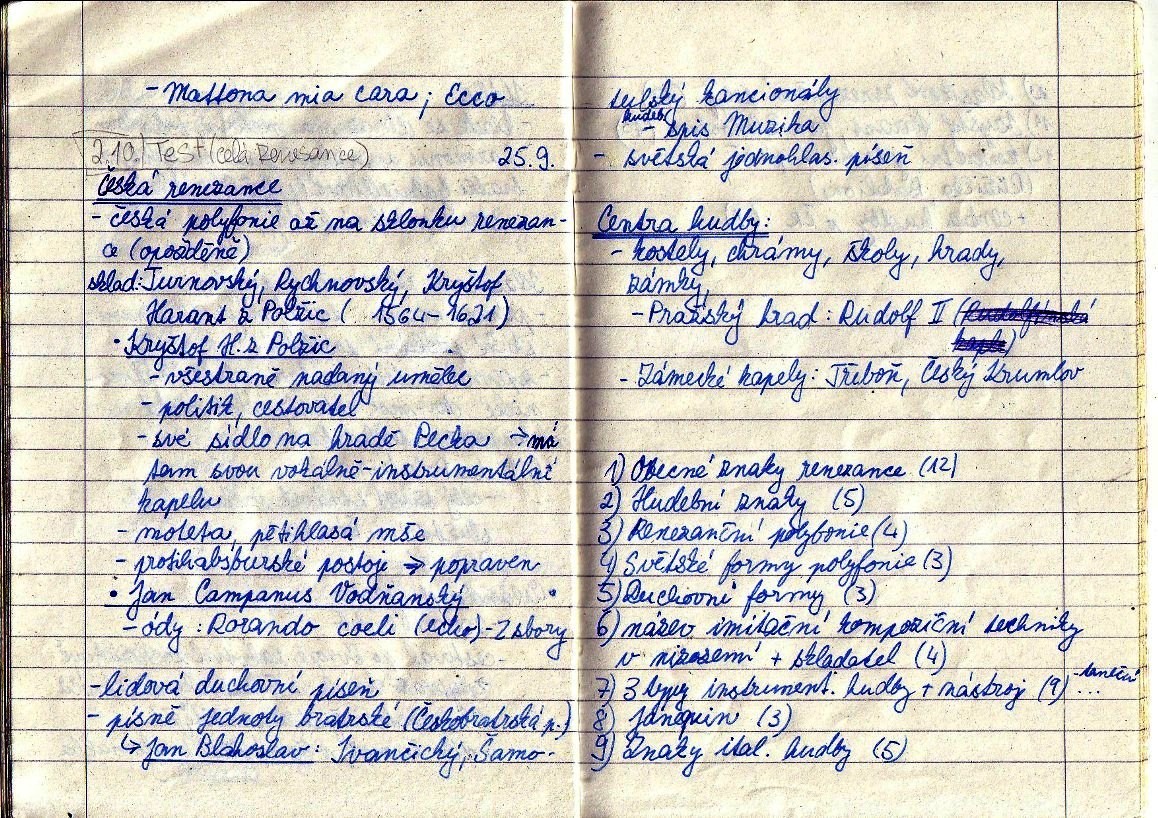 - Mattona mia cara; Ecco
2.10. Test (celá Renesance) 25.9.
Česká renezance
- česká polyfonie až na sklonku renezan-
ce (opožděně)
sklad: Turnovský, Rychnovský, Kryštof
Harant z Polžic ( 1564-1621)
• Kryštof H. z Polžic
- všestraně nadaný umělec
- politik, cestovatel
- své sídlo na hradě Pecka → má
tam svou vokálně-instrumentální
kapelu
- moteta, pětihlasá mše
- protihabsburské postoje → popraven
• Jan Campanus Vodňanský
- ódy: Rorando coeli (echo) - 2 sbory
- lidová duchovní píseň
- písně jednoty bratrské (Českobratrská p.)
↳ Jan Blahoslav: Ivančický, Šamo-
tulský kancionály
hudeb
- spis Muzika
- světská jednohlas. píseň
Centra hudby:
- kostely, chrámy, školy, hrady,
zámky,
- Pražský hrad: Rudolf II (Rudolfínská
kapla)
- Zámecké kapely: Třeboň, Český Krumlov
1) Obecné znaky renezance (12)
2) Hudební znaky (5)
3) Renezanční polyfonie (4)
4) Světské formy polyfonie (3)
5) Duchovní formy (3)
6) název imitační kompoziční techniky
v nizozemí + skladatel (4)
7) 3 typy instrument. hudby + nástroj (9) - taneční ...
8) Janequin (3)
9) Znaky ital. hudby (5)